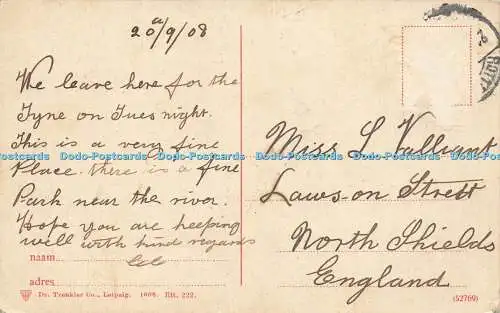 20/9/08
We leave here for the
Tyne on Tues night.
This is a very fine
Place. there is a fine
Park near the river.
Hope you are keeping
well with kind regards
naam
adres
Dr. Trenkler Co., Leipzig. 1906. Rtt. 222.
Miss L Valliant
Laws-on Street
North Shields
England
(52769)
Dodo-Postcards Dodo-Postcards Dodo-Postcards Dodo-Postcards